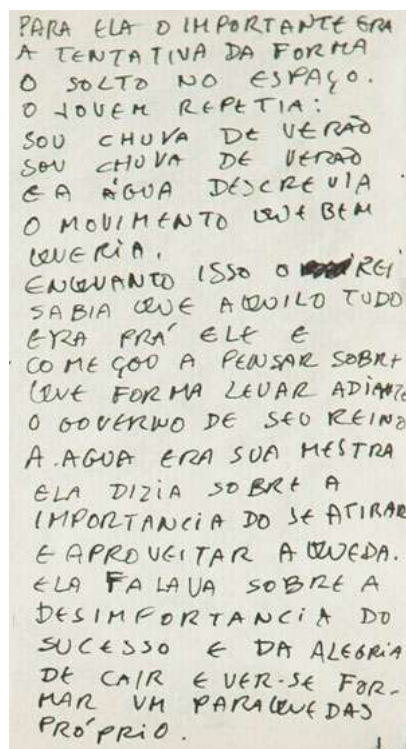 PARA ELA O IMPORTANTE ERA
A TENTATIVA DA FORMA
O SOLTO NO ESPAÇO.
O JOVEM REPETIA:
SOU CHUVA DE VERÃO
SOU CHUVA DE VERÃO
E A ÁGUA DESCREVIA
O MOVIMENTO QUE BEM
QUERIA.
ENQUANTO ISSO O REI
SABIA QUE AQUILO TUDO
ERA PRÁ ELE E
COMEÇOU A PENSAR SOBRE
QUE FORMA LEVAR ADIANTE
O GOVERNO DE SEU REINO
A AGUA ERA SUA MESTRA
ELA DIZIA SOBRE A
IMPORTANCIA DO SE ATIRAR
E APROVEITAR A QUEDA.
ELA FALAVA SOBRE A
DESIMPORTANCIA DO
SUCESSO E DA ALEGRIA
DE CAIR E VER-SE FOR-
MAR UM PARAQUEDAS
PRÓPRIO.